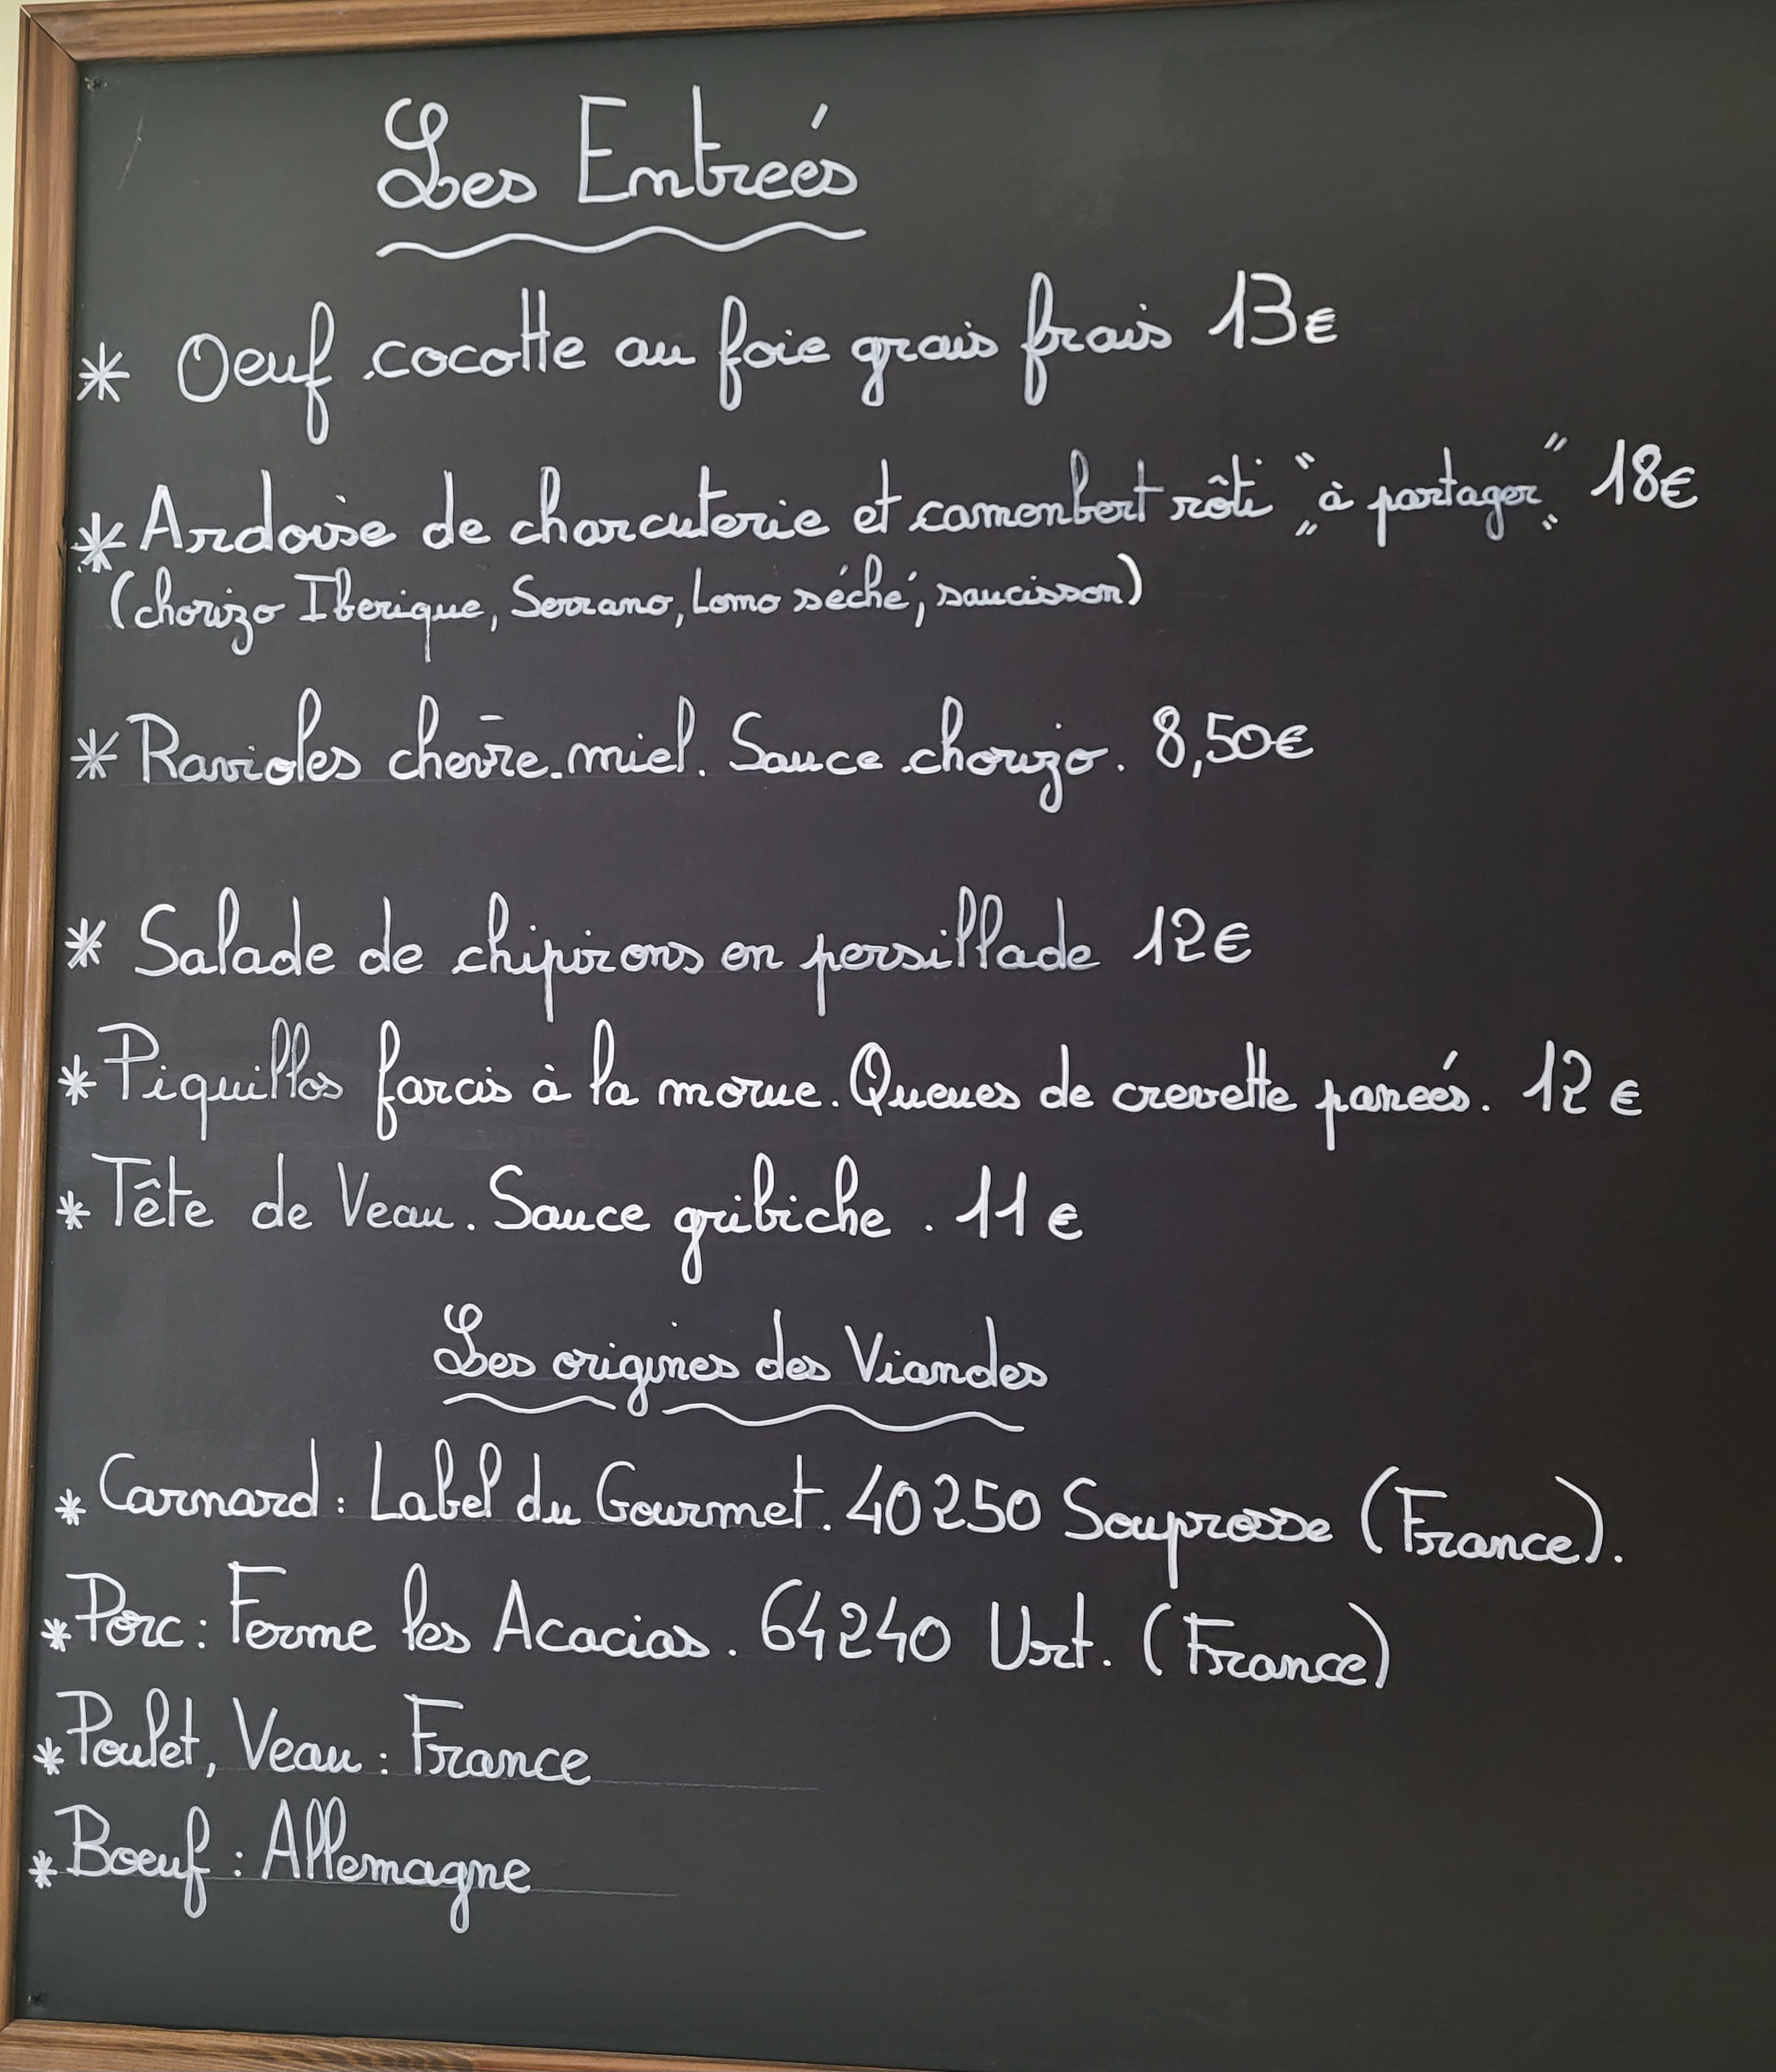 Les Entreés
* Oeuf cocotte au foie grais frais 13€
* Ardoise de charcuterie et camenbert rôti "à partager" 18€
(chorizo Iberique, Serrano, Lomo séché, saucisson)
* Ravioles chevre-miel. Sauce chorizo. 8,50€
* Salade de chipirons en persillade 12€
* Piquillos farcis à la morue. Queues de crevette paneés. 12€
* Tête de Veau. Sauce gribiche. 11€
Les origines des Viandes
* Carnard: Label du Gourmet. 40250 Souprosse (France).
* Porc: Ferme les Acacias. 64240 Urt. (France)
* Poulet, Veau: France
* Boeuf: Allemagne